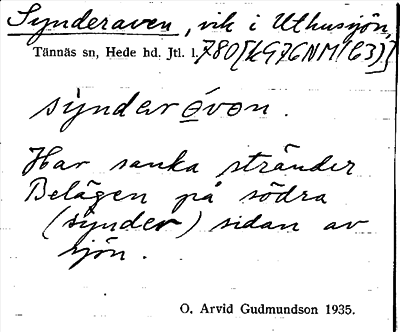 Synderaven, vik i Uthusjön,
Tännäs sn, Hede hd. Jtl. l. 780
synderövon.
Har sanka stränder
Belägen på södra
(synder) sidan av
sjön.
O. Arvid Gudmundson 1935.